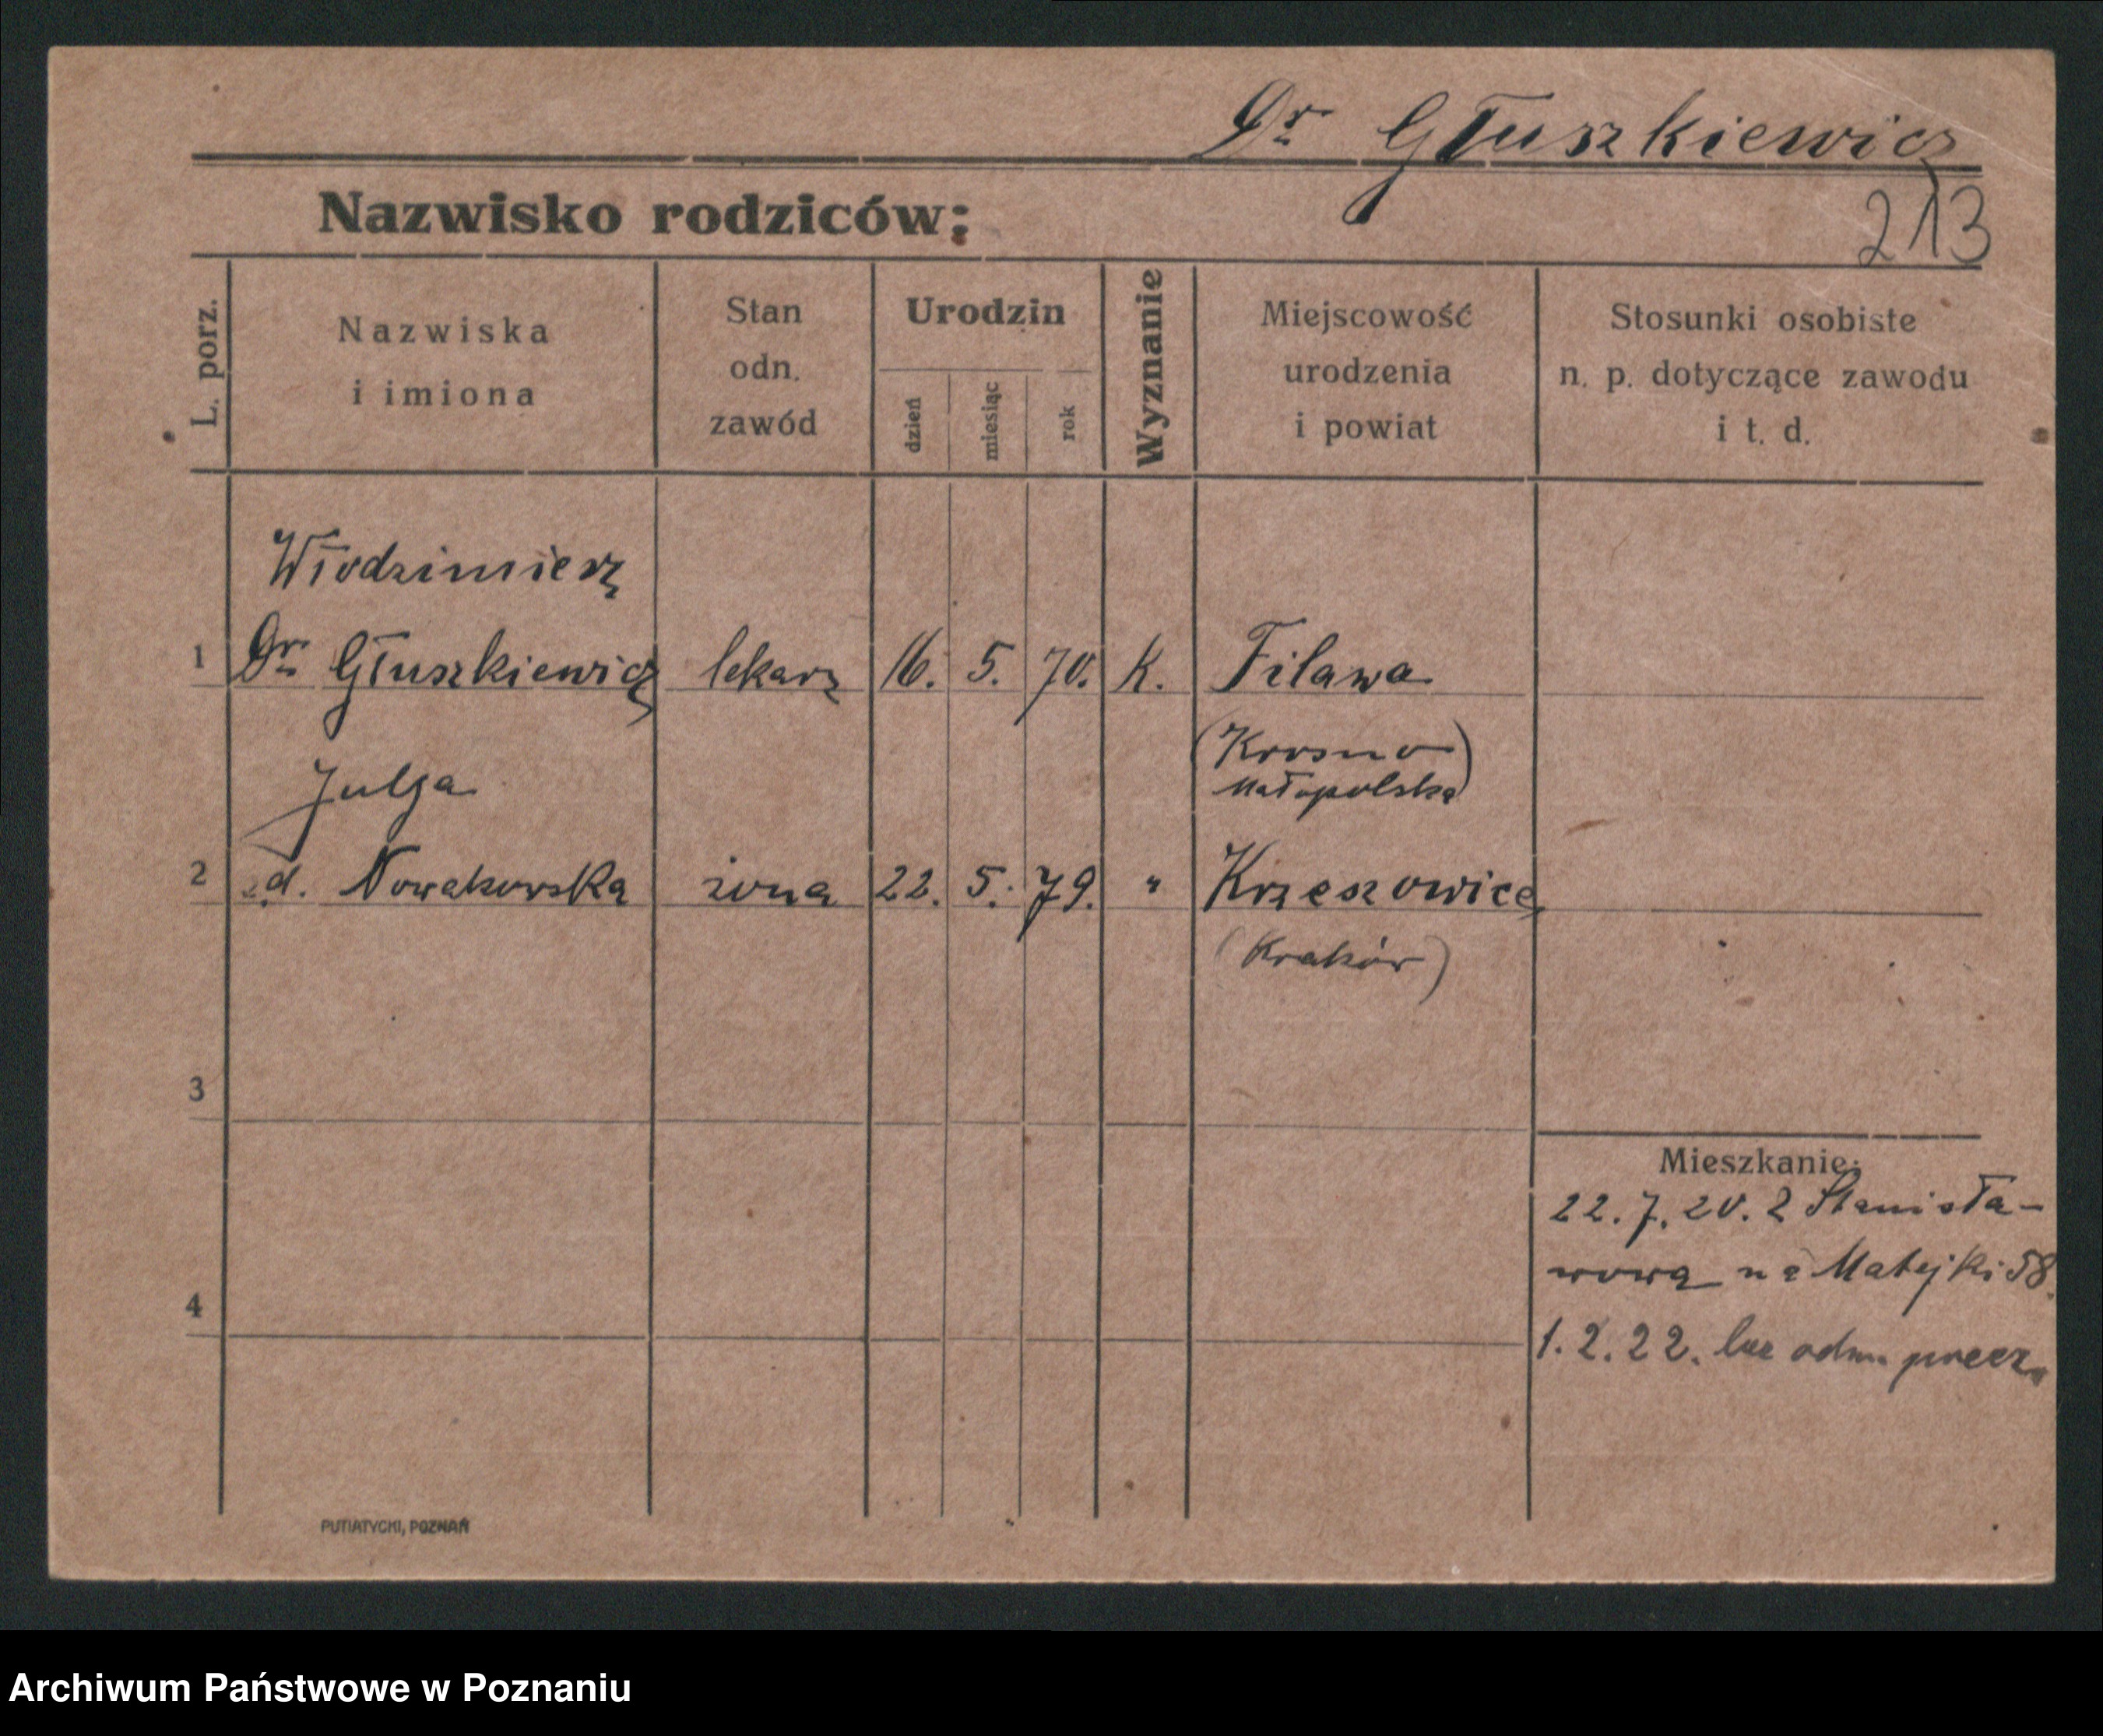 Dr Głuszkiewicz
213
Nazwisko rodziców:
L. porz.
Nazwiska
i imiona
Stan
odn.
zawód
Urodzin
dzień
miesiąc
rok
Wyznanie
Miejscowość
urodzenia
i powiat
Stosunki osobiste
n. p. dotyczące zawodu
i t. d.
Włodzimierz
1 Dr Głuszkiewicz lekarz 16. 5. 70. K. Filawa
(Krosno
Małopolska)
Julja
2 d. Nowakowska żona 22. 5. 79. " Krzeszowice
(Kraków)
3
Mieszkanie:
22. 7. 20. z Stanisła-
wowa na Matejki 58.
4
1. 2. 22. bez odm. precz.
PUTIATYCKI, POZNAŃ
Archiwum Państwowe w Poznaniu